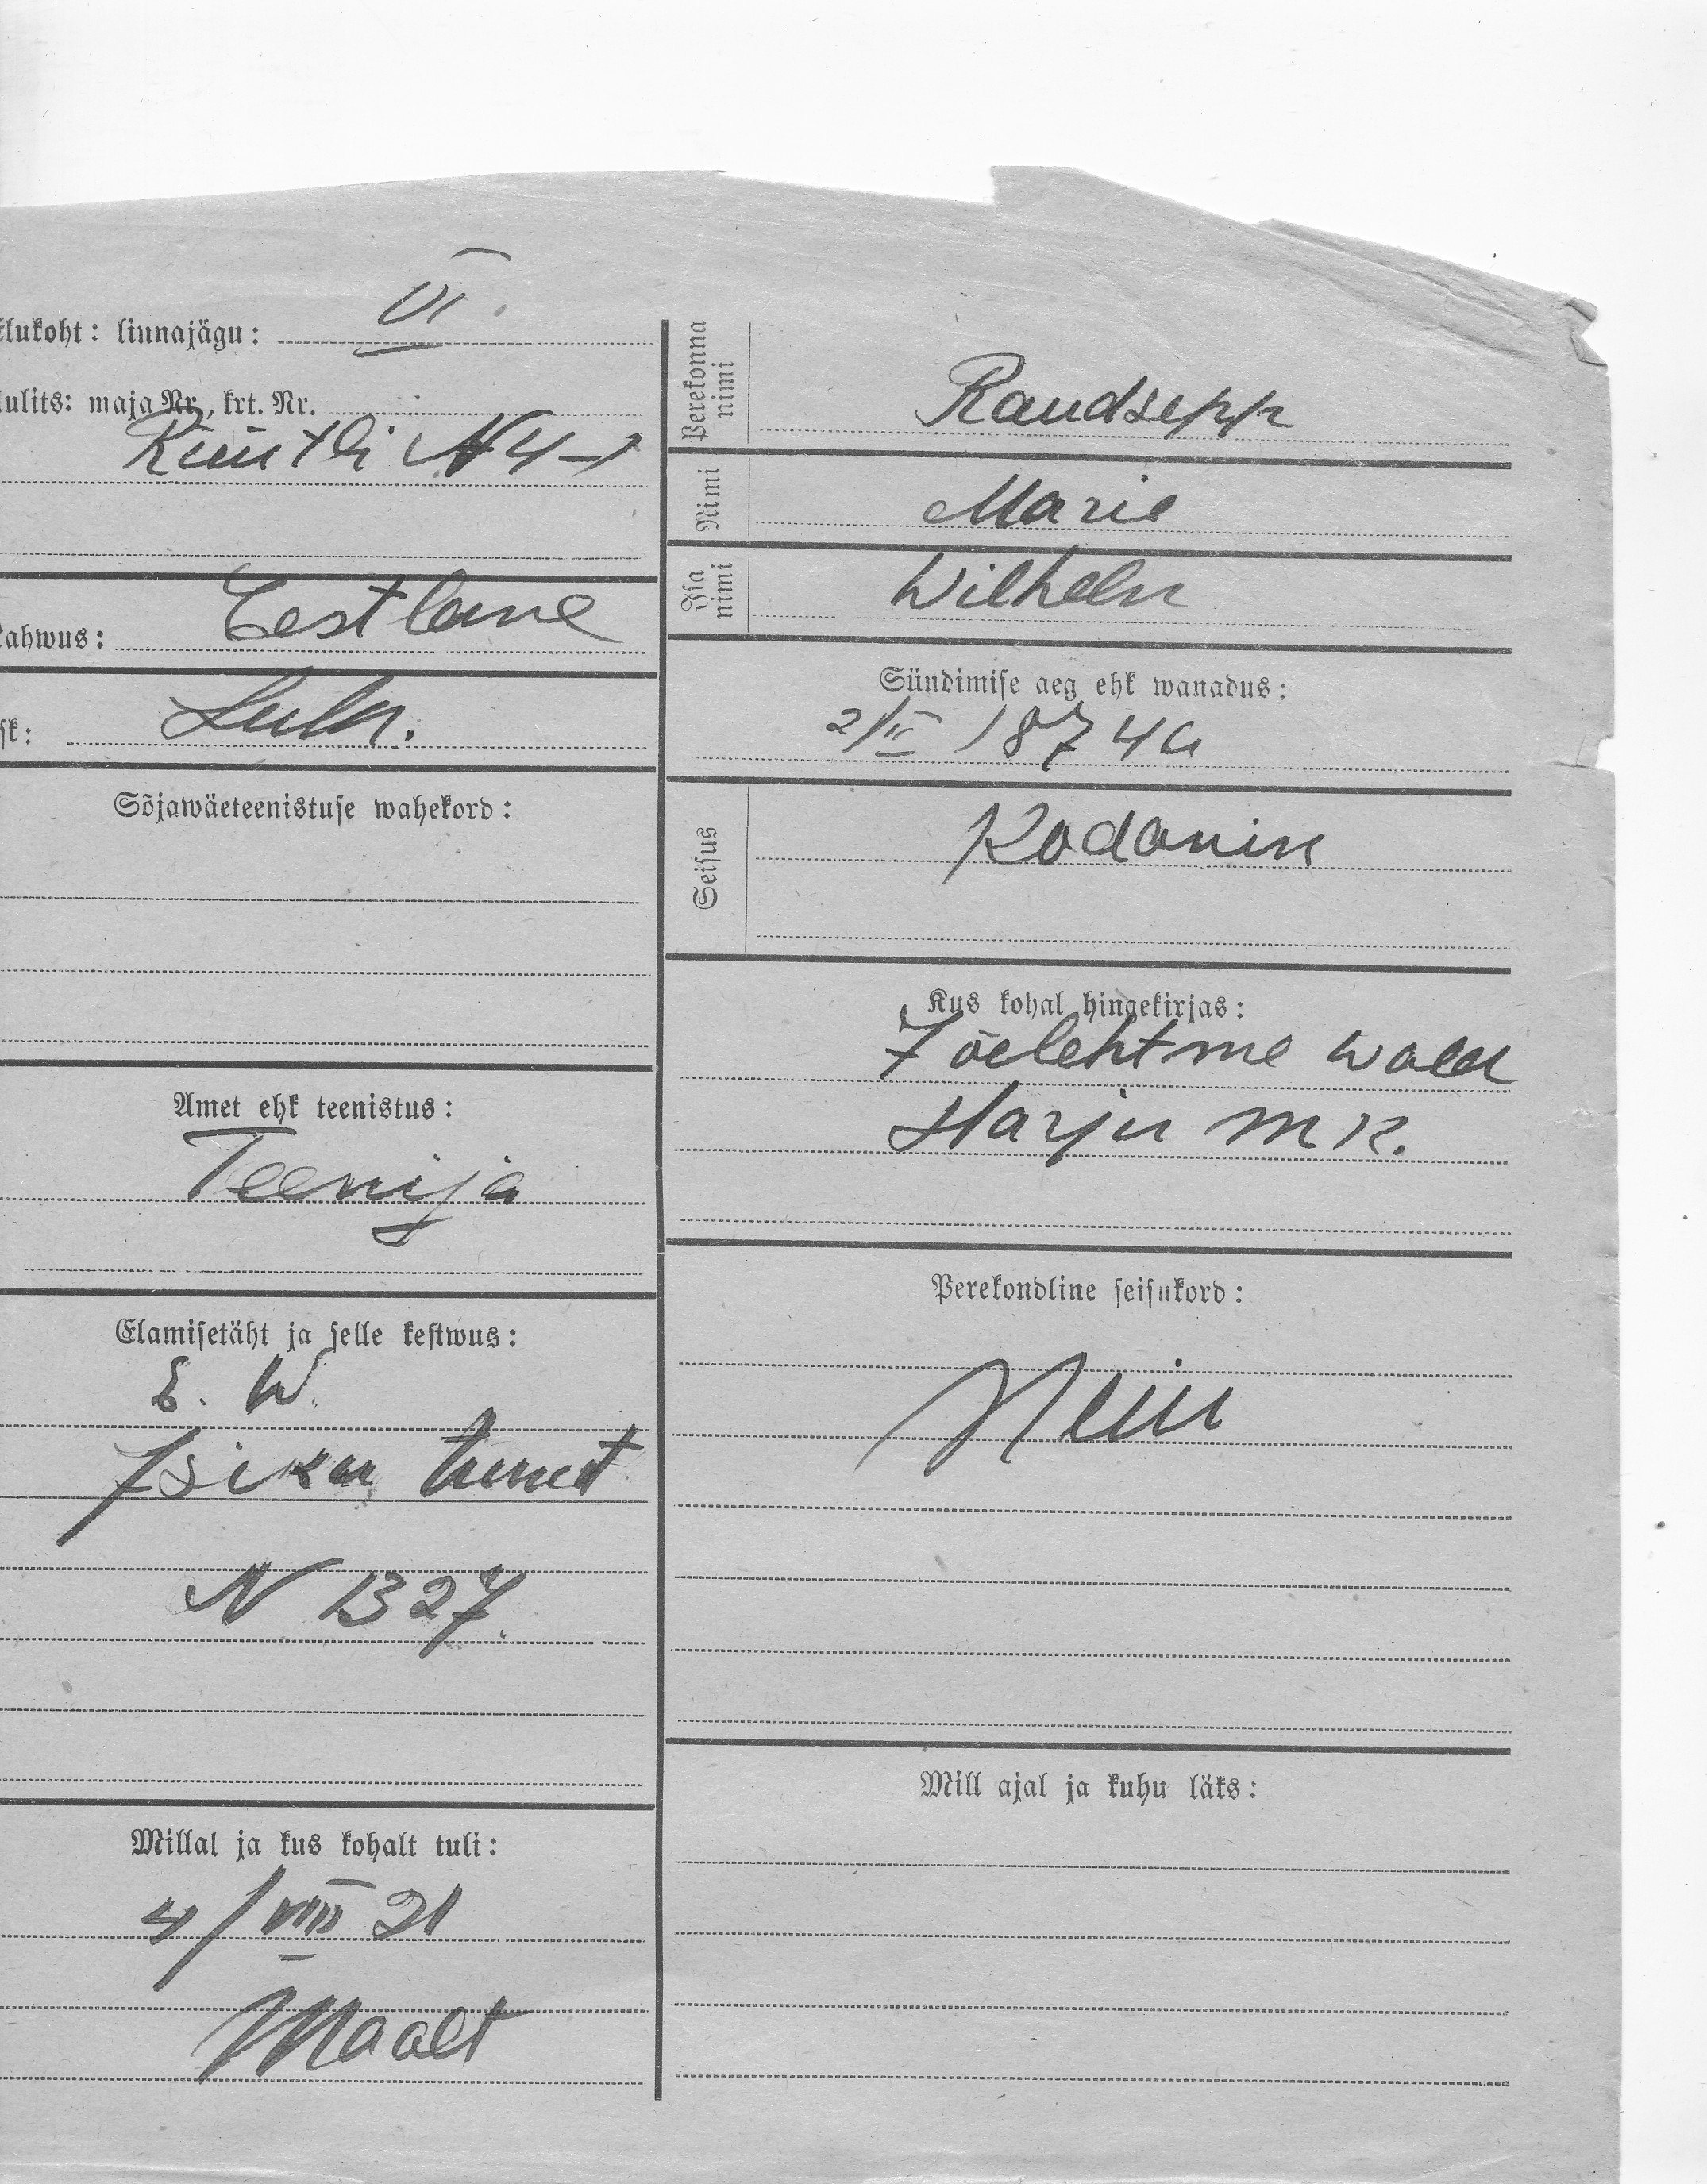 Elukoht: linnajägu: VI.
uulits: maja Nr., krt. Nr.
Rüütli N 4-1
Rahwus: Eestlane
sk: Luth.
Sõjawäeteenistuse wahekord:
Amet ehk teenistus:
Teenija
Elamisetäht ja selle kestwus:
E. W.
Isiku tunnist
N 1327.
Millal ja kus kohalt tuli:
4/VIII 21
Maalt
Perekonna
nimi
Raudsepp
Nimi
Marie
Isa
nimi
Wilhelm
Sündimise aeg ehk wanadus:
2/II 1874 a
Seisus
Kodanin
Kus kohal hingekirjas:
Jõelehtme wald
Harju mk.
Perekondline seisukord:
Mill ajal ja kuhu läks: